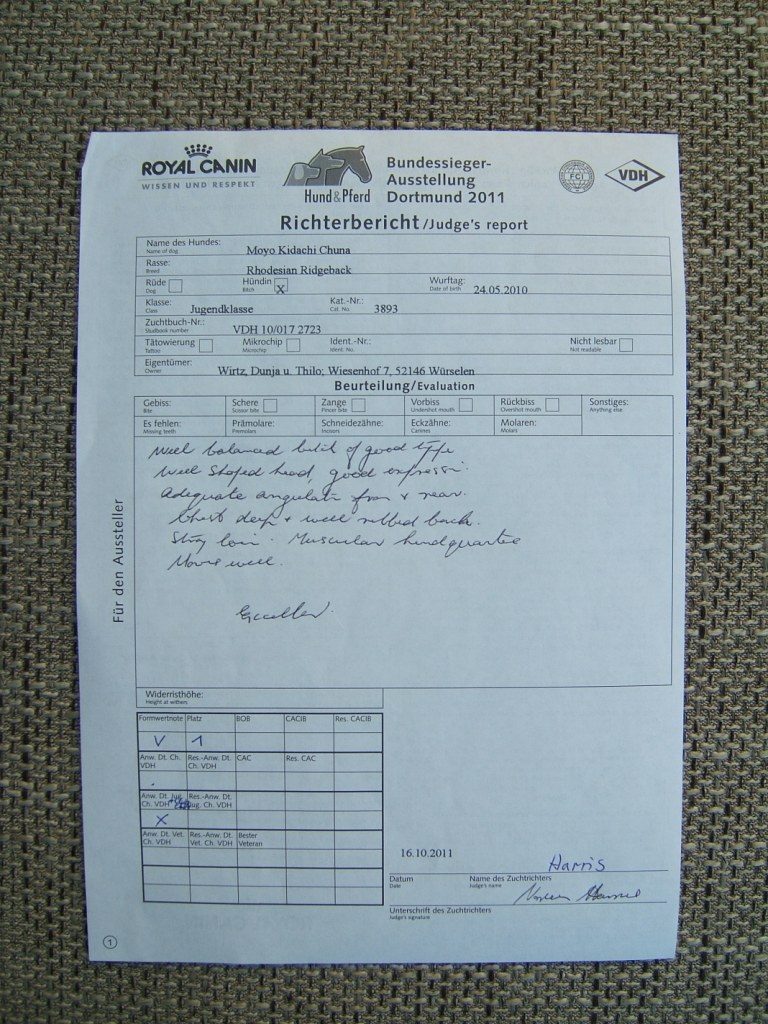 ROYAL CANIN
WISSEN UND RESPEKT
Hund & Pferd
Bundessieger-
Ausstellung
Dortmund 2011
FCI
VDH
Richterbericht/Judge's report
Name des Hundes: Moyo Kidachi Chuna
Name of dog
Rasse: Rhodesian Ridgeback
Breed
Rüde Hündin X Wurftag: 24.05.2010
Dog Bitch Date of birth
Klasse: Jugendklasse Kat.-Nr.: 3893
Class Cat. No.
Zuchtbuch-Nr.: VDH 10/017 2723
Studbook number
Tätowierung Mikrochip Ident.-Nr.: Nicht lesbar
Tattoo Microchip Ident. No. Not readable
Eigentümer: Wirtz, Dunja u. Thilo; Wiesenhof 7, 52146 Würselen
Owner
Beurteilung/Evaluation
Gebiss: Schere Zange Vorbiss Rückbiss Sonstiges:
Bite Scissor bite Pincer bite Undershot mouth Overshot mouth Anything else
Es fehlen: Prämolare: Schneidezähne: Eckzähne: Molaren:
Missing teeth Premolars Incisors Canines Molars
Well balanced bitch of good type
Well shaped head, good
Adequate + rear.
Chest deep + well ribbed back.
Muscular hindquarter
well.
Für den Aussteller
Widerristhöhe:
Height at withers
Formwertnote Platz BOB CACIB Res. CACIB
V 1
Anw. Dt. Ch. VDH Res.-Anw. Dt. Ch. VDH CAC Res. CAC
Anw. Dt. Jug. Ch. VDH Res.-Anw. Dt. Jug. Ch. VDH
X
Anw. Dt. Vet. Ch. VDH Res.-Anw. Dt. Vet. Ch. VDH Bester Veteran
16.10.2011 Harris
Datum Name des Zuchtrichters
Date Judge's name
Unterschrift des Zuchtrichters
Judge's signature
1